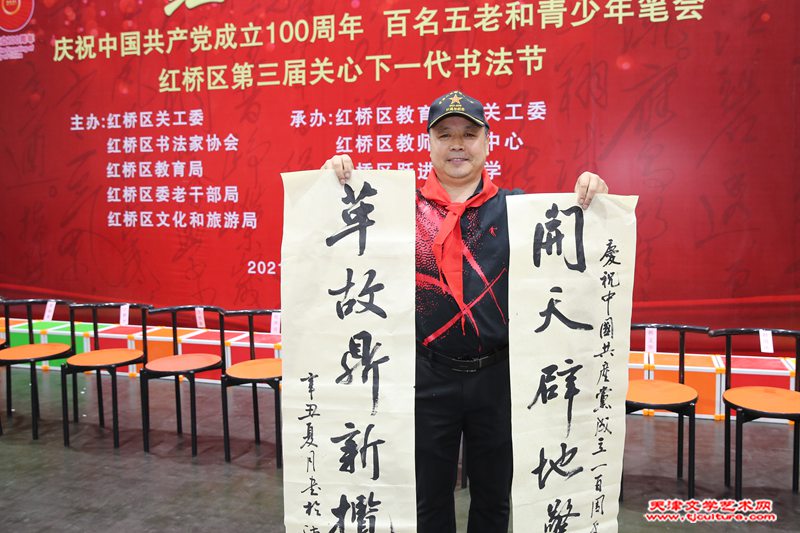 庆祝中国共产党成立100周年 百名五老和青少年笔会
红桥区第三届关心下一代书法节
主办:红桥区关工委
红桥区书法家协会
红桥区教育局
红桥区委老干部局
红桥区文化和旅游局
承办:红桥区教育 关工委
红桥区教师 中心
桥区跃进 学
202
慶祝中國共產黨成立一百周
開天辟地
革故鼎新
辛丑夏月書於
天津文学艺术网
www.tjculture.com